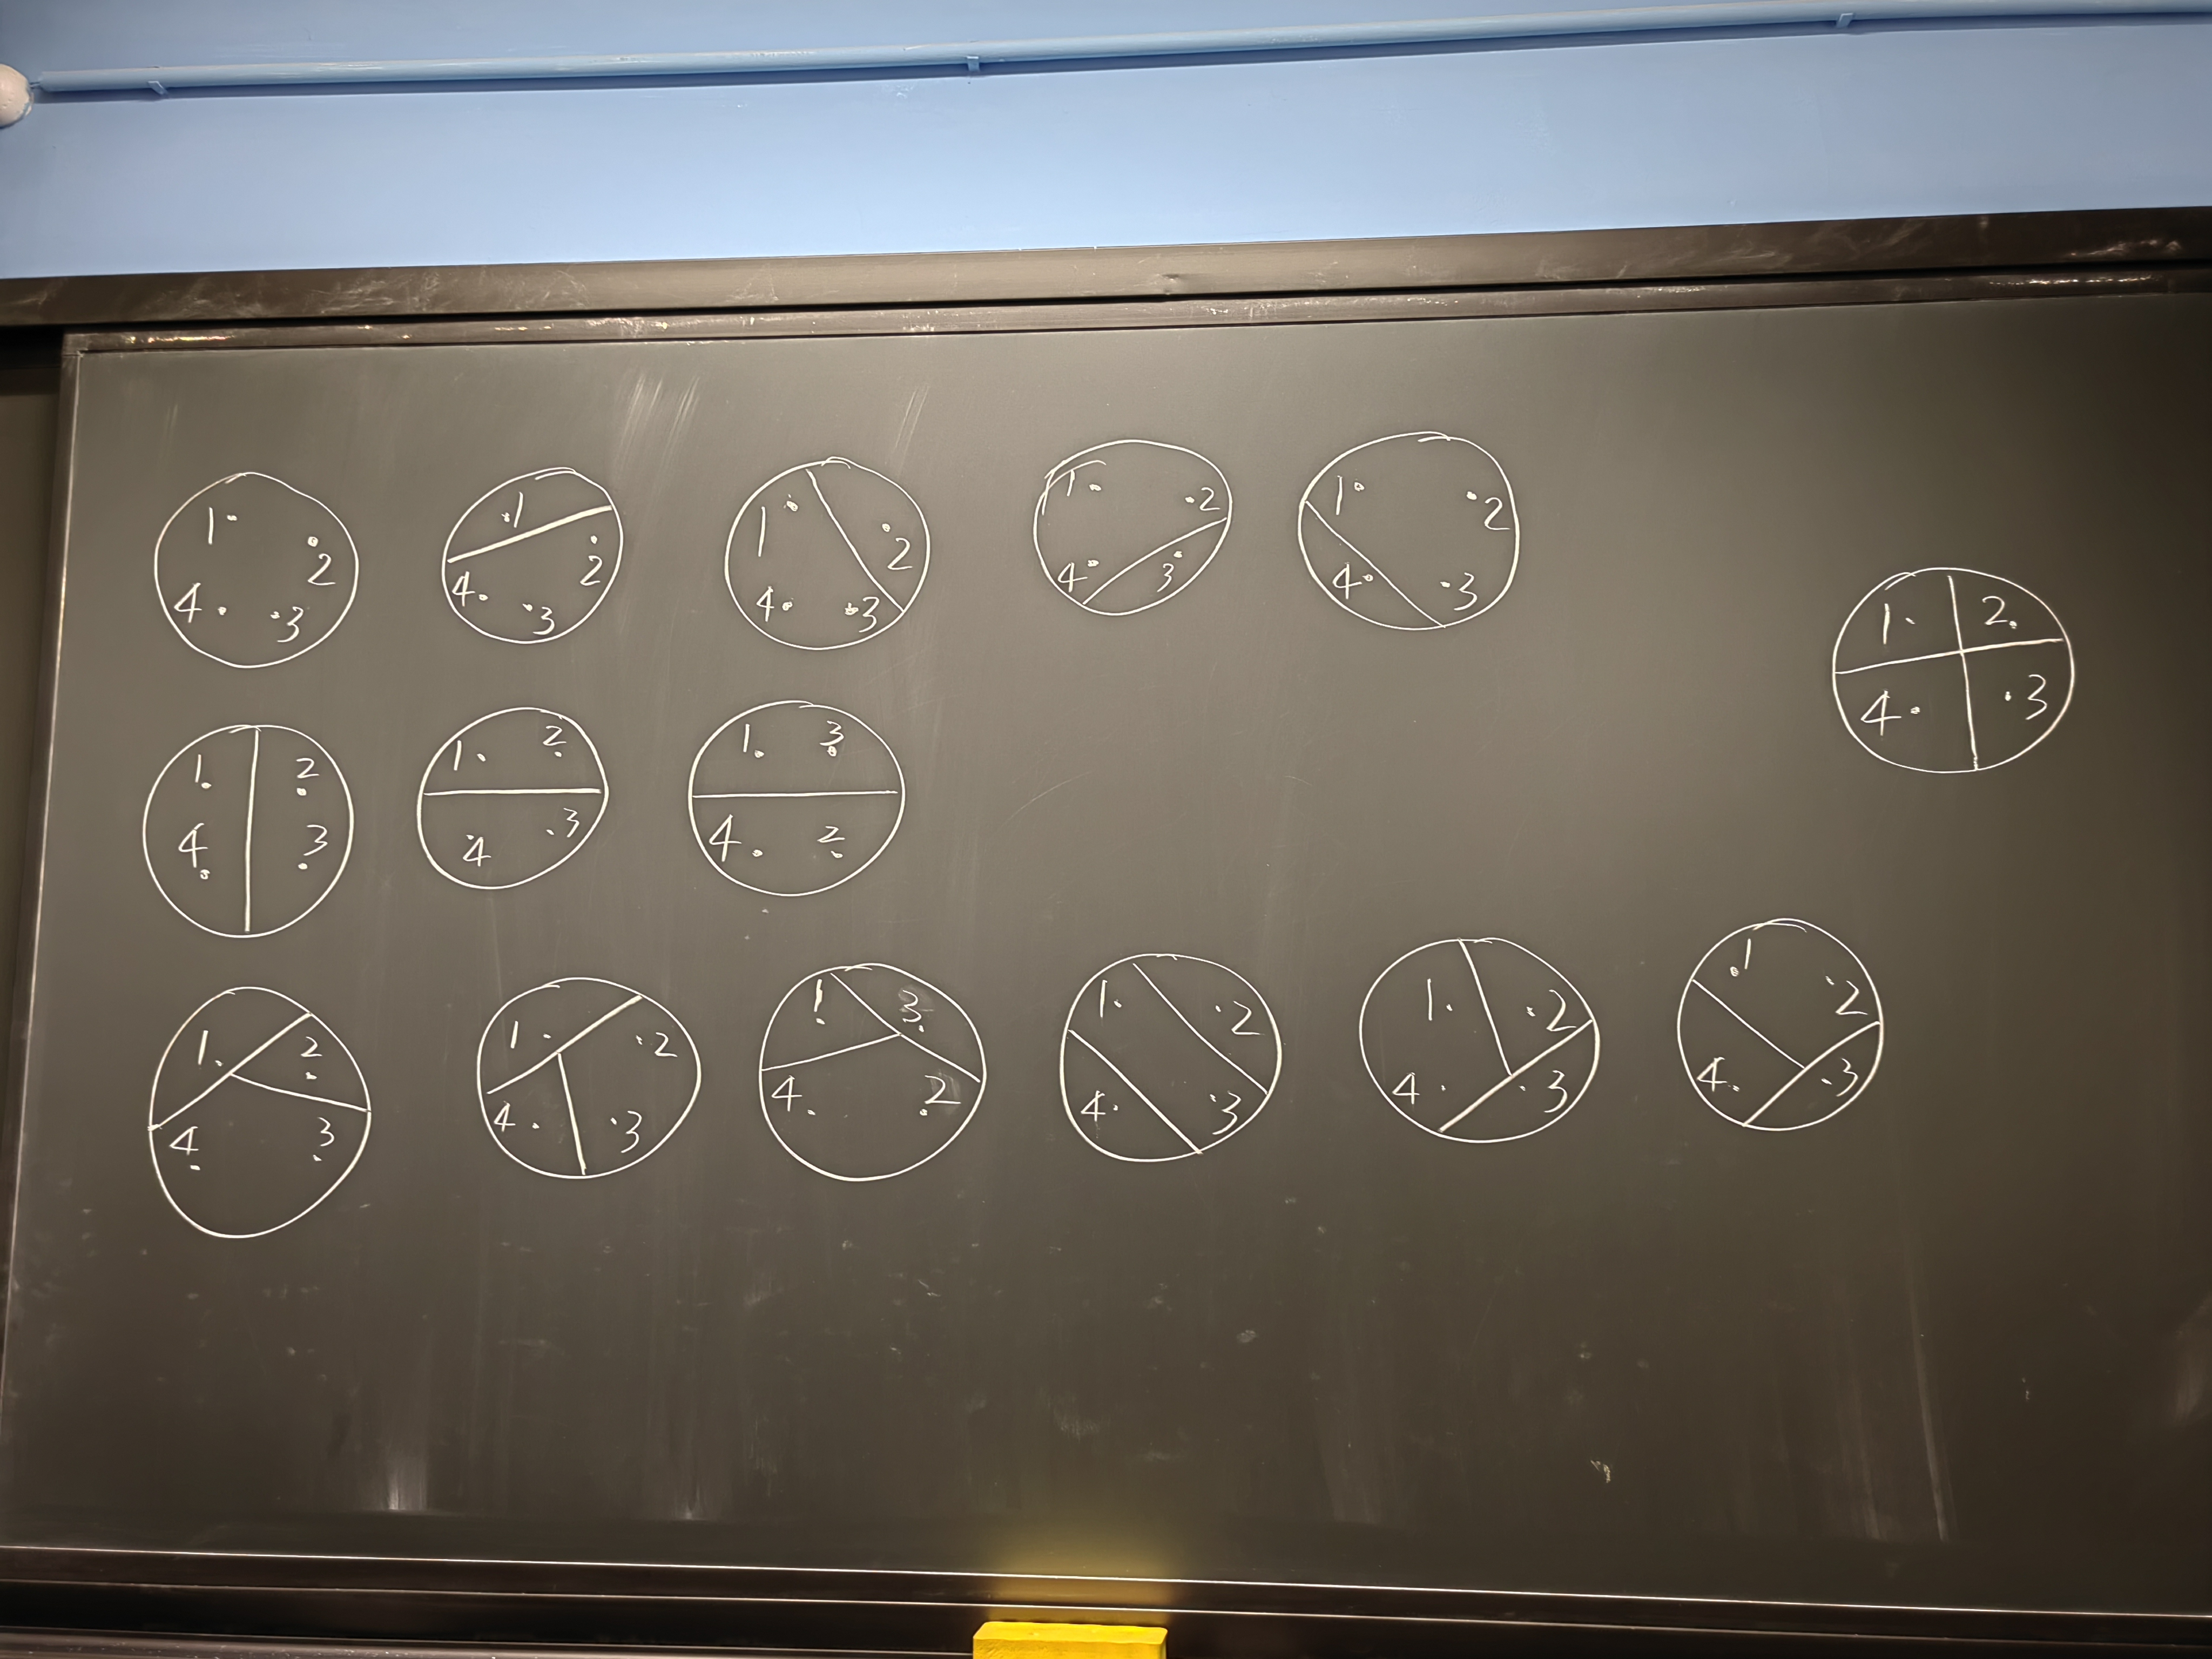 1 2 4 3
1 4 2 3
1 2 4 3
1 2 4 3
1 2 4 3
1 2 4 3
1 2 4 3
1 2 4 3
1 3 4 2
1 2 4 3
1 2 4 3
1 3 4 2
1 2 4 3
1 2 4 3
1 2 4 3